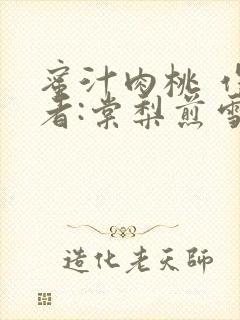 蜜汁肉桃 作
者:棠梨煎雪
造化老天師